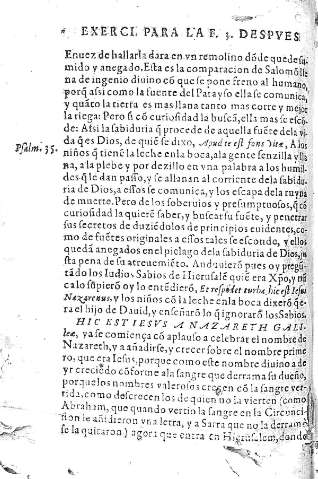 EXERCI. PARA LA F. 3. DESPVES
En vez de hallarla dara en vn remolino dõde quede su-
mido y anegado. Esta es la comparacion de Salomõ lle
na de ingenio diuino cõ que se pone freno al humano,
porq̃ assi como la fuente del Patayso ella se comunica,
y quãto la tierra es mas llana tanto mas corre y mejor
la riega: Pero si cõ curiosidad la buscã, ella mas se escõ-
de: Assi la sabiduria q̃ procede de aquella fuẽte dela vi-
da q̃ es Dios, de quiẽ se dixo, Apud te est fons vitæ, A los
Psalm. 35.
niños q̃ tienẽ la leche enla boca, ala gente senzilla y lla
na, a la plebe y por dezillo en vna palabra a los humil-
des que le dan passo, y se allanan al corriente dela sabidu
ria de Dios, a essos se comunica, y los escapa dela ruyna
de muerte. Pero de los soberuios y presumptuosos, q̃ cõ
curiosidad la quierẽ saber, y buscar su fuẽte, y penetrar
sus secretos de duziẽdolos de principios euidentes, co-
mo de fuẽtes originales a essos tales se esconde, y ellos
quedã anegados en el pielago dela sabiduria de Dios, in
sta pena de su atreuimiẽto. Anduuierõ pues oy pregũ-
tãdo los Iudios Sabios de Hierusalẽ quiẽ era Xp̃o, y nũ
ca lo supierõ oy lo entẽdierõ, Et respõdet turba, hic est Iesus
Nazarenus, y los niños cõ la leche en la boca dixerõ que-
ra el hijo de Dauid, y enseñarõ lo q̃ ignorarõ los Sabios.
HIC EST IESVS A NAZARETH GALI-
leæ, ya se comiença cõ aplauso a celebrar el nombre de
Nazareth, y a añadirse, y crescer sobre el nombre prime
ro, que era Iesus, porque como este nombre diuino a de
yr creciẽdo cõforme ala sangre que derrama su dueño,
porque los nombres valerosos crecen cõ la sangre ver-
tida, como descrecen los de quien no la vierten (como
Abraham, que quando vertio la sangre en la Circunci
sion le añadieron vna letra, y a Sarra que no la derramò
se la quitaron) agora que entra en Hierusalem, donde